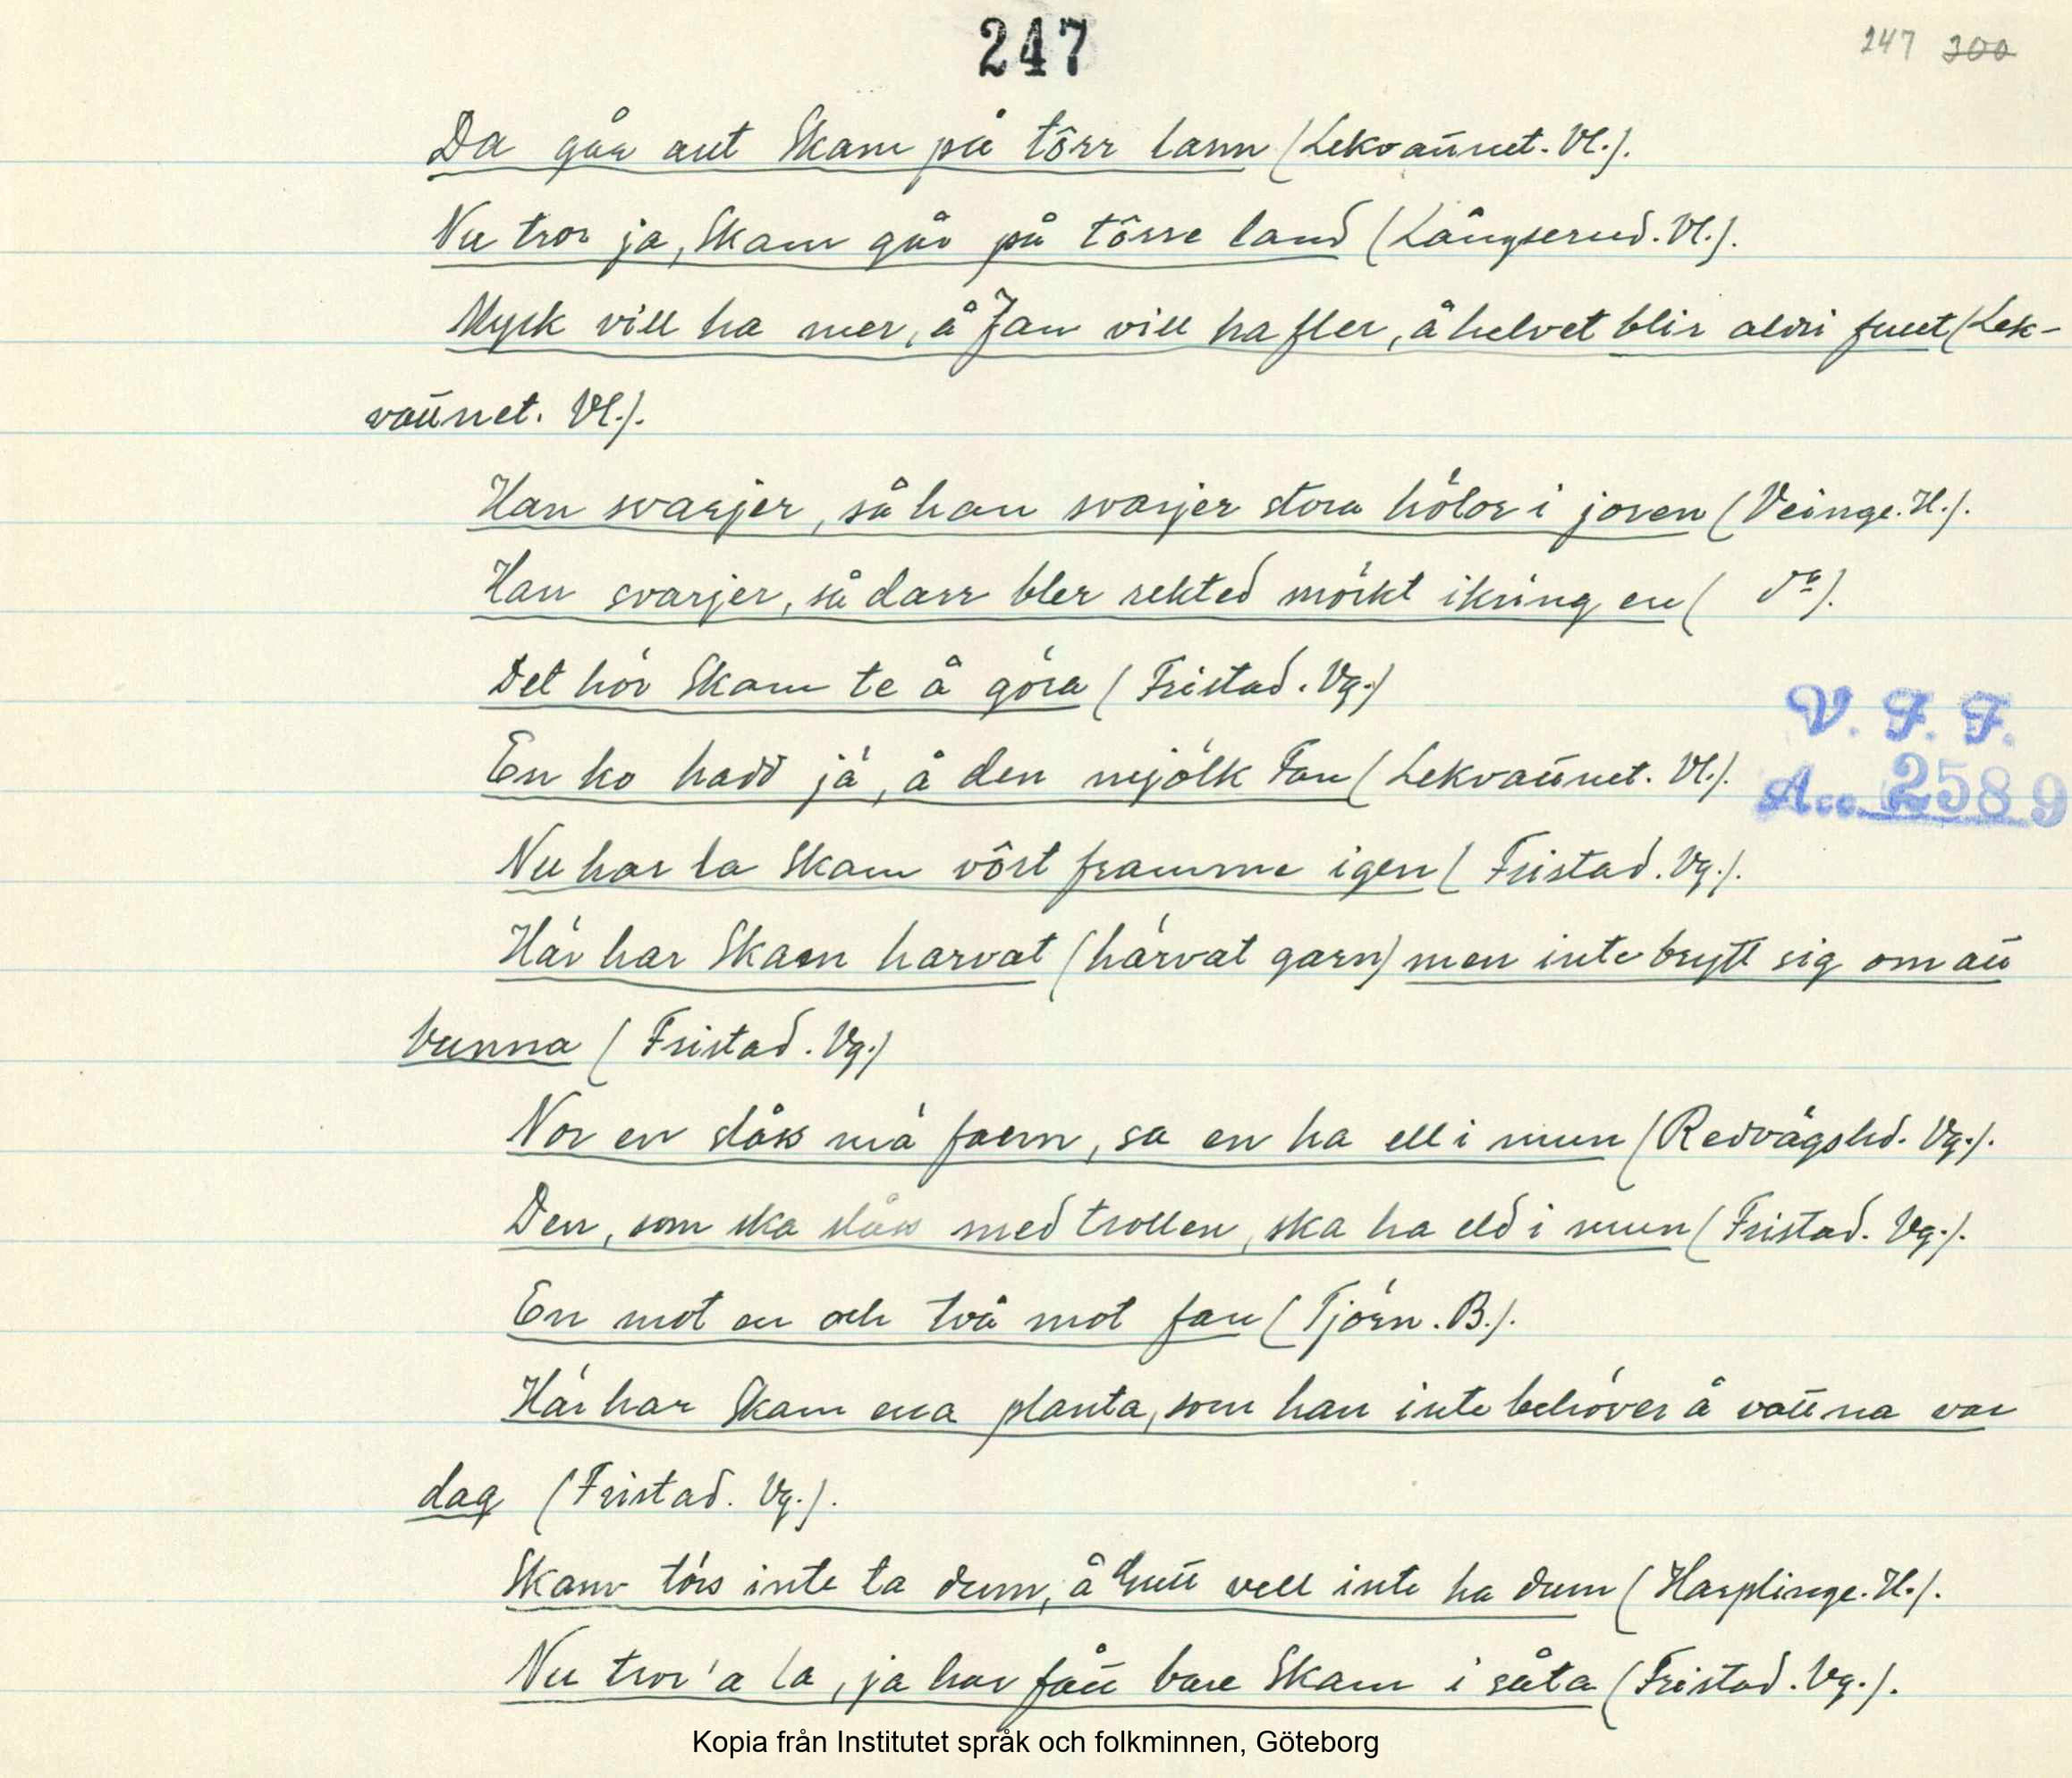 247
247 300
Da gåa aut Skam på tôrr lann (Lekvattnet. Vl.).
Nu tror ja, Skam går på tôrre land (Långserud. Vl.).
Myck vill ha mer, å Fan vill ha fler, å helvet blir aldri fullt (Lek-
vattnet. Vl.).
Han svarjer, så han svarjer stora hölor i joren (Veinge. H.).
Han svarjer, så darr bler rekted mörkt ikring en ( do).
Det hör Skam te å göra (Fristad. Vg.)
En ko hadd jä, å den mjölk Fan (Lekvattnet. Vl.).
V. F. F.
Acc. 2589
Nu har la Skam vôrt framme igen (Fristad. Vg.).
Här har Skam harvat (härvat garn) men inte brytt sig om att
bunna (Fristad. Vg.)
Nor en slåss mä faern, sa en ha ell i mun (Redvägshd. Vg.).
Den, som ska slåss med trollen, ska ha eld i mun (Fristad. Vg.).
En mot en och två mot fan (Tjörn. B.).
Här har Skam ena planta, som han inte behöver å vattna var
dag (Fristad. Vg.).
Skam törs inte ta dum, å Gutt vell inte ha dum (Harplinge. H.).
Nu tror'a la, ja har fått bare Skam i såta (Fristad. Vg.).
Kopia från Institutet språk och folkminnen, Göteborg